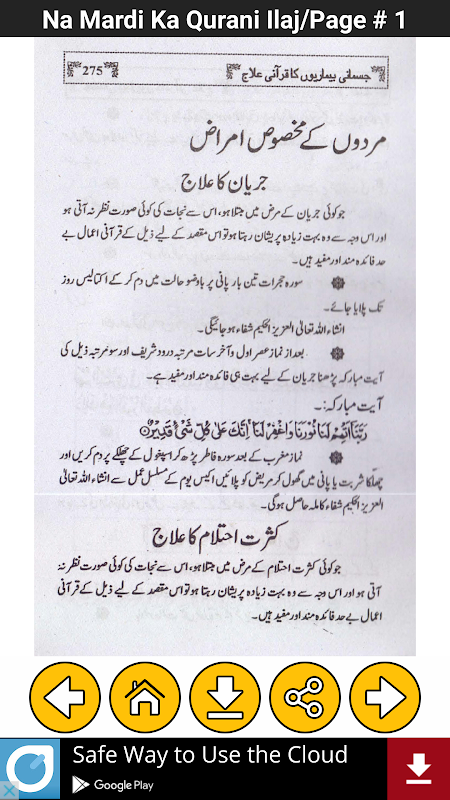 Na Mardi Ka Qurani Ilaj/Page # 1
جسمانی بیماریوں کا قرآنی علاج
275
مردوں کے مخصوص امراض
جریان کا علاج
جو کوئی جریان کے مرض میں مبتلا ہو، اس سے نجات کی کوئی صورت نظر نہ آتی ہو
اور اس وجہ سے وہ بہت زیادہ پریشان رہتا ہو تو اس مقصد کے لیے ذیل کے قرآنی اعمال بے
حد فائدہ مند اور مفید ہیں۔
سورہ حجرات تین بار پانی پر باوضو حالت میں دم کر کے اکتالیس روز
تک پلایا جائے۔
انشاء اللہ تعالیٰ العزیز الحکیم شفاء ہو جائیگی۔
بعد از نماز عصر اول و آخر سات مرتبہ درود شریف اور سو مرتبہ ذیل کی
آیت مبارکہ پڑھنا جریان کے لیے بہت ہی فائدہ مند اور مفید ہے۔
آیت مبارکہ:۔
رَبَّنَا اَتْمِمْ لَنَا نُوْرَنَا وَاغْفِرْ لَنَا اِنَّكَ عَلٰى كُلِّ شَيْءٍ قَدِيْرٌ
نماز مغرب کے بعد سورہ فاطر پڑھ کر اسپغول کے چھلکے پر دم کریں اور
چھلکا شربت یا پانی میں گھول کر مریض کو پلائیں اکیس یوم کے مسلسل عمل سے انشاء اللہ تعالیٰ
العزیز الحکیم شفاء کاملہ حاصل ہوگی۔
کثرت احتلام کا علاج
جو کوئی کثرت احتلام کے مرض میں مبتلا ہو، اس سے نجات کی کوئی صورت نظر نہ
آتی ہو اور اس وجہ سے وہ بہت زیادہ پریشان رہتا ہو تو اس مقصد کے لیے ذیل کے قرآنی
اعمال بے حد فائدہ مند اور مفید ہیں۔
Safe Way to Use the Cloud
Google Play